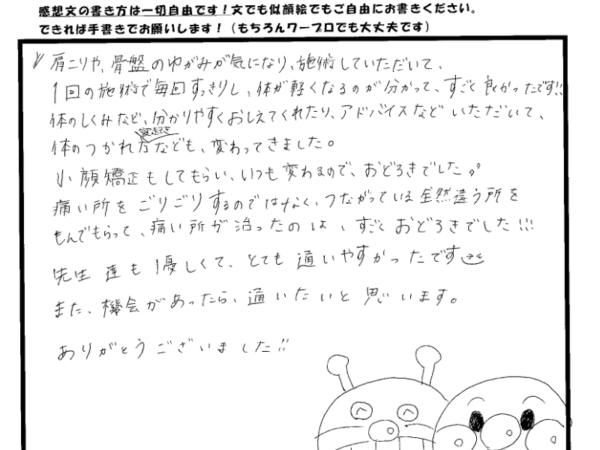 感想文の書き方は一切自由です！文でも似顔絵でもご自由にお書きください。
できれば手書きでお願いします！（もちろんワープロでも大丈夫です）
肩こりや、骨盤のゆがみが気になり、施術していただいて、
1回の施術で毎回すっきりし、体が軽くなるのが分かって、すごく良かったです!!
体のしくみなど、分かりやすくおしえてくれたり、アドバイスなどいただいて、
体のつかれ方なども、変わってきました。
小顔矯正もしてもらい、いつも変わるので、おどろきでした。
痛い所をゴリゴリするのではなく、つながっている全然違う所を
もんでもらって、痛い所が治ったのは、すごくおどろきでした!!!
先生達も優しくて、とても通いやすかったです
また、機会があったら、通いたいと思います。
ありがとうございました!!